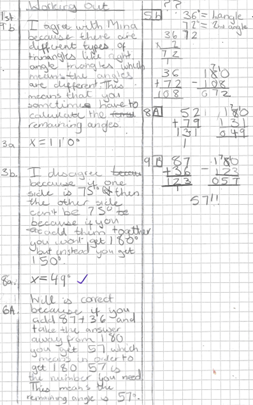 Working Out
1st
1b I agree with Mina
because there are
different types of
triangles like right
angle triangles which
means the angles
are different. This
means that you
sometimes have to
calculate the
remaining angles.
3a x = 110°
3b. I disagree
because if one
side is 75° then
the other side
can't be 75°
because if you
add them together
you won't get 180°
but instead you get
150°
8a. x = 49° ✓
6A. Will is correct
because if you
add 87 + 36 and
take the answer
away from 180
you get 57 which
means in order to
get 180 57 is
the number you need
This means the
remaining angle is 57°.
??
5A 36° = angle
72° = angle
36 72
x 2
72
36 180
+ 72 - 108
108 072
8A 52 180
+ 79 131
131 049
1
9A 87 180
+ 36 - 123
123 057
57